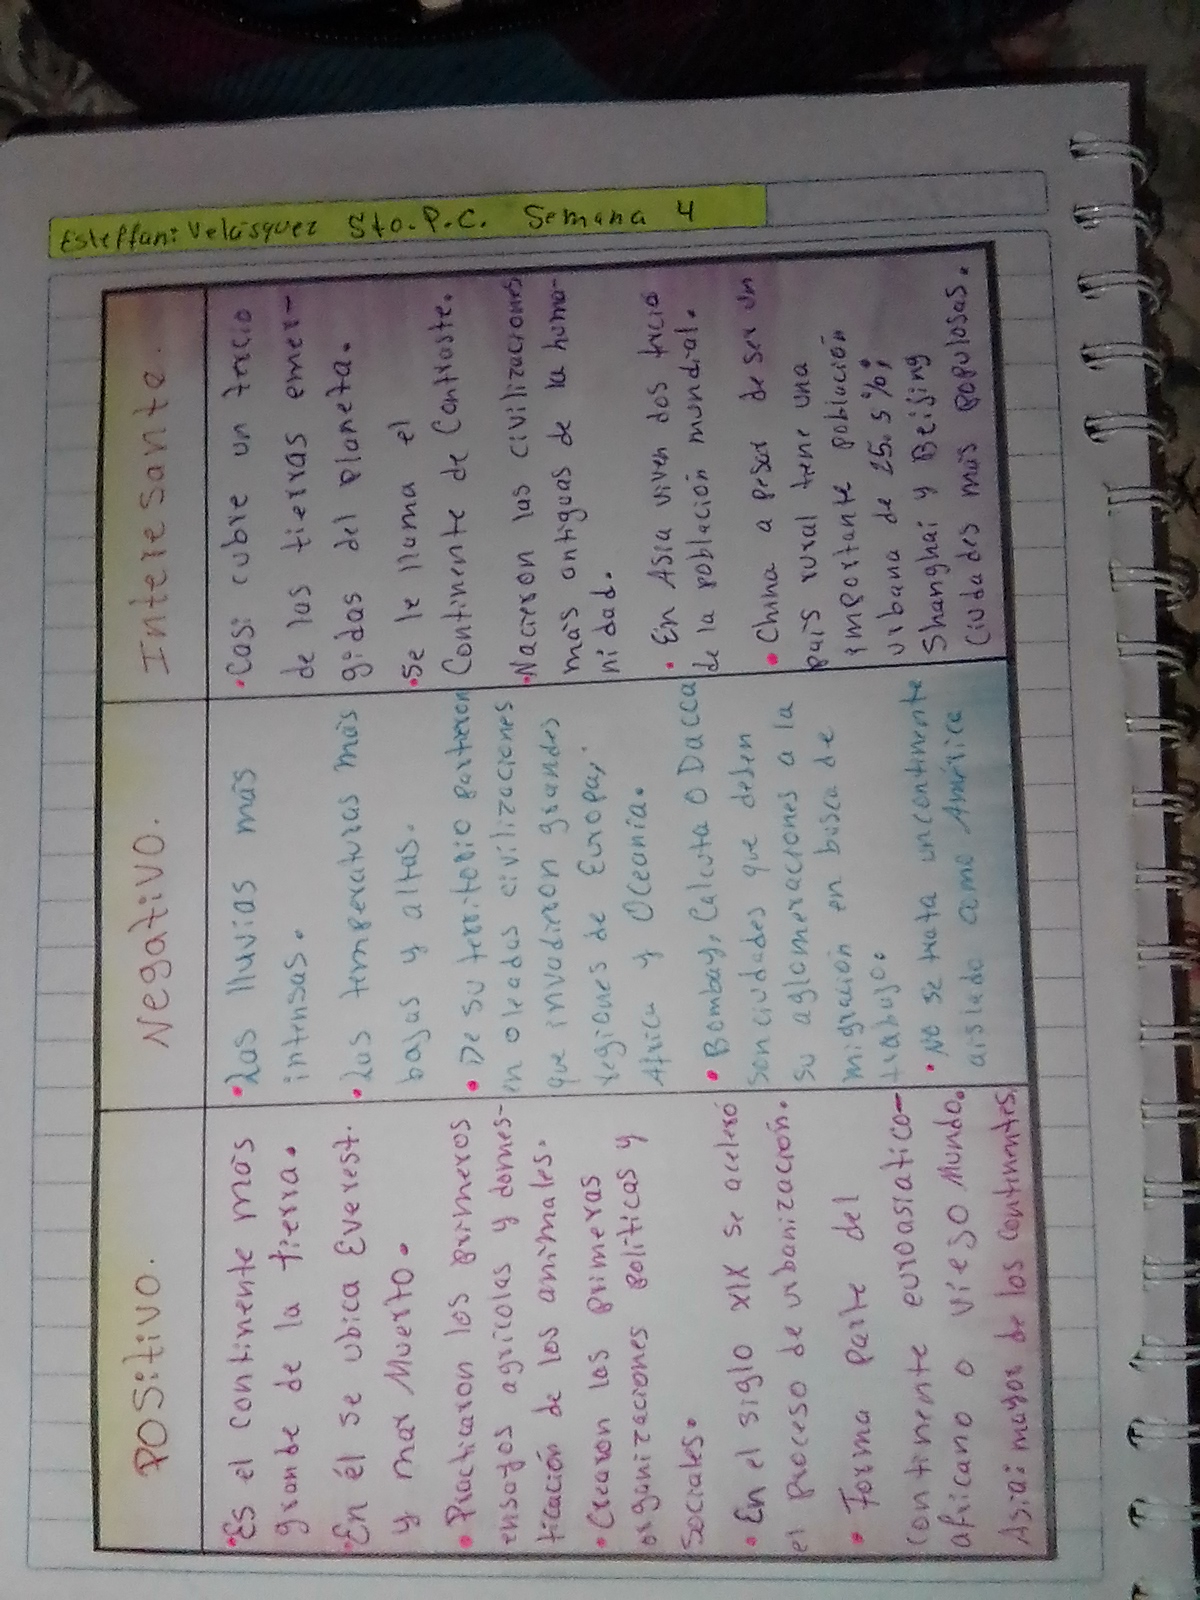 Esteffani Velásquez 5to. P.C. Semana 4
Positivo.
•Es el continente más
grande de la tierra.
•En él se ubica Everest.
y mar Muerto.
•Practicaron los primeros
ensayos agrícolas y domes-
ticación de los animales.
•Crearon las primeras
organizaciones políticas y
sociales.
•En el siglo XIX se aceleró
el proceso de urbanización.
• Forma parte del
continente euroasiatico-
africano o viejo Mundo.
Asia: mayor de los continentes.
Negativo.
•Las lluvias más
intensas.
•Las temperaturas más
bajas y altas.
•De su territorio partieron
en oleadas civilizaciones
que invadieron grandes
regiones de Europa,
Africa y Oceanía.
•Bombay, Calcuta o Dacca
son ciudades que deben
su aglomeraciones a la
migración en busca de
trabajo.
•No se trata un continente
aislado como América
Interesante.
•Casi cubre un tercio
de las tierras emer-
gidas del planeta.
•Se le llama el
Continente de Contraste.
•Nacieron las civilizaciones
más antiguas de la huma-
nidad.
•En Asia viven dos tercio
de la población mundial.
•China a pesar de ser un
país rural tiene una
importante población
urbana de 25.5%;
Shanghai y Beijing
Ciudades más populosas.